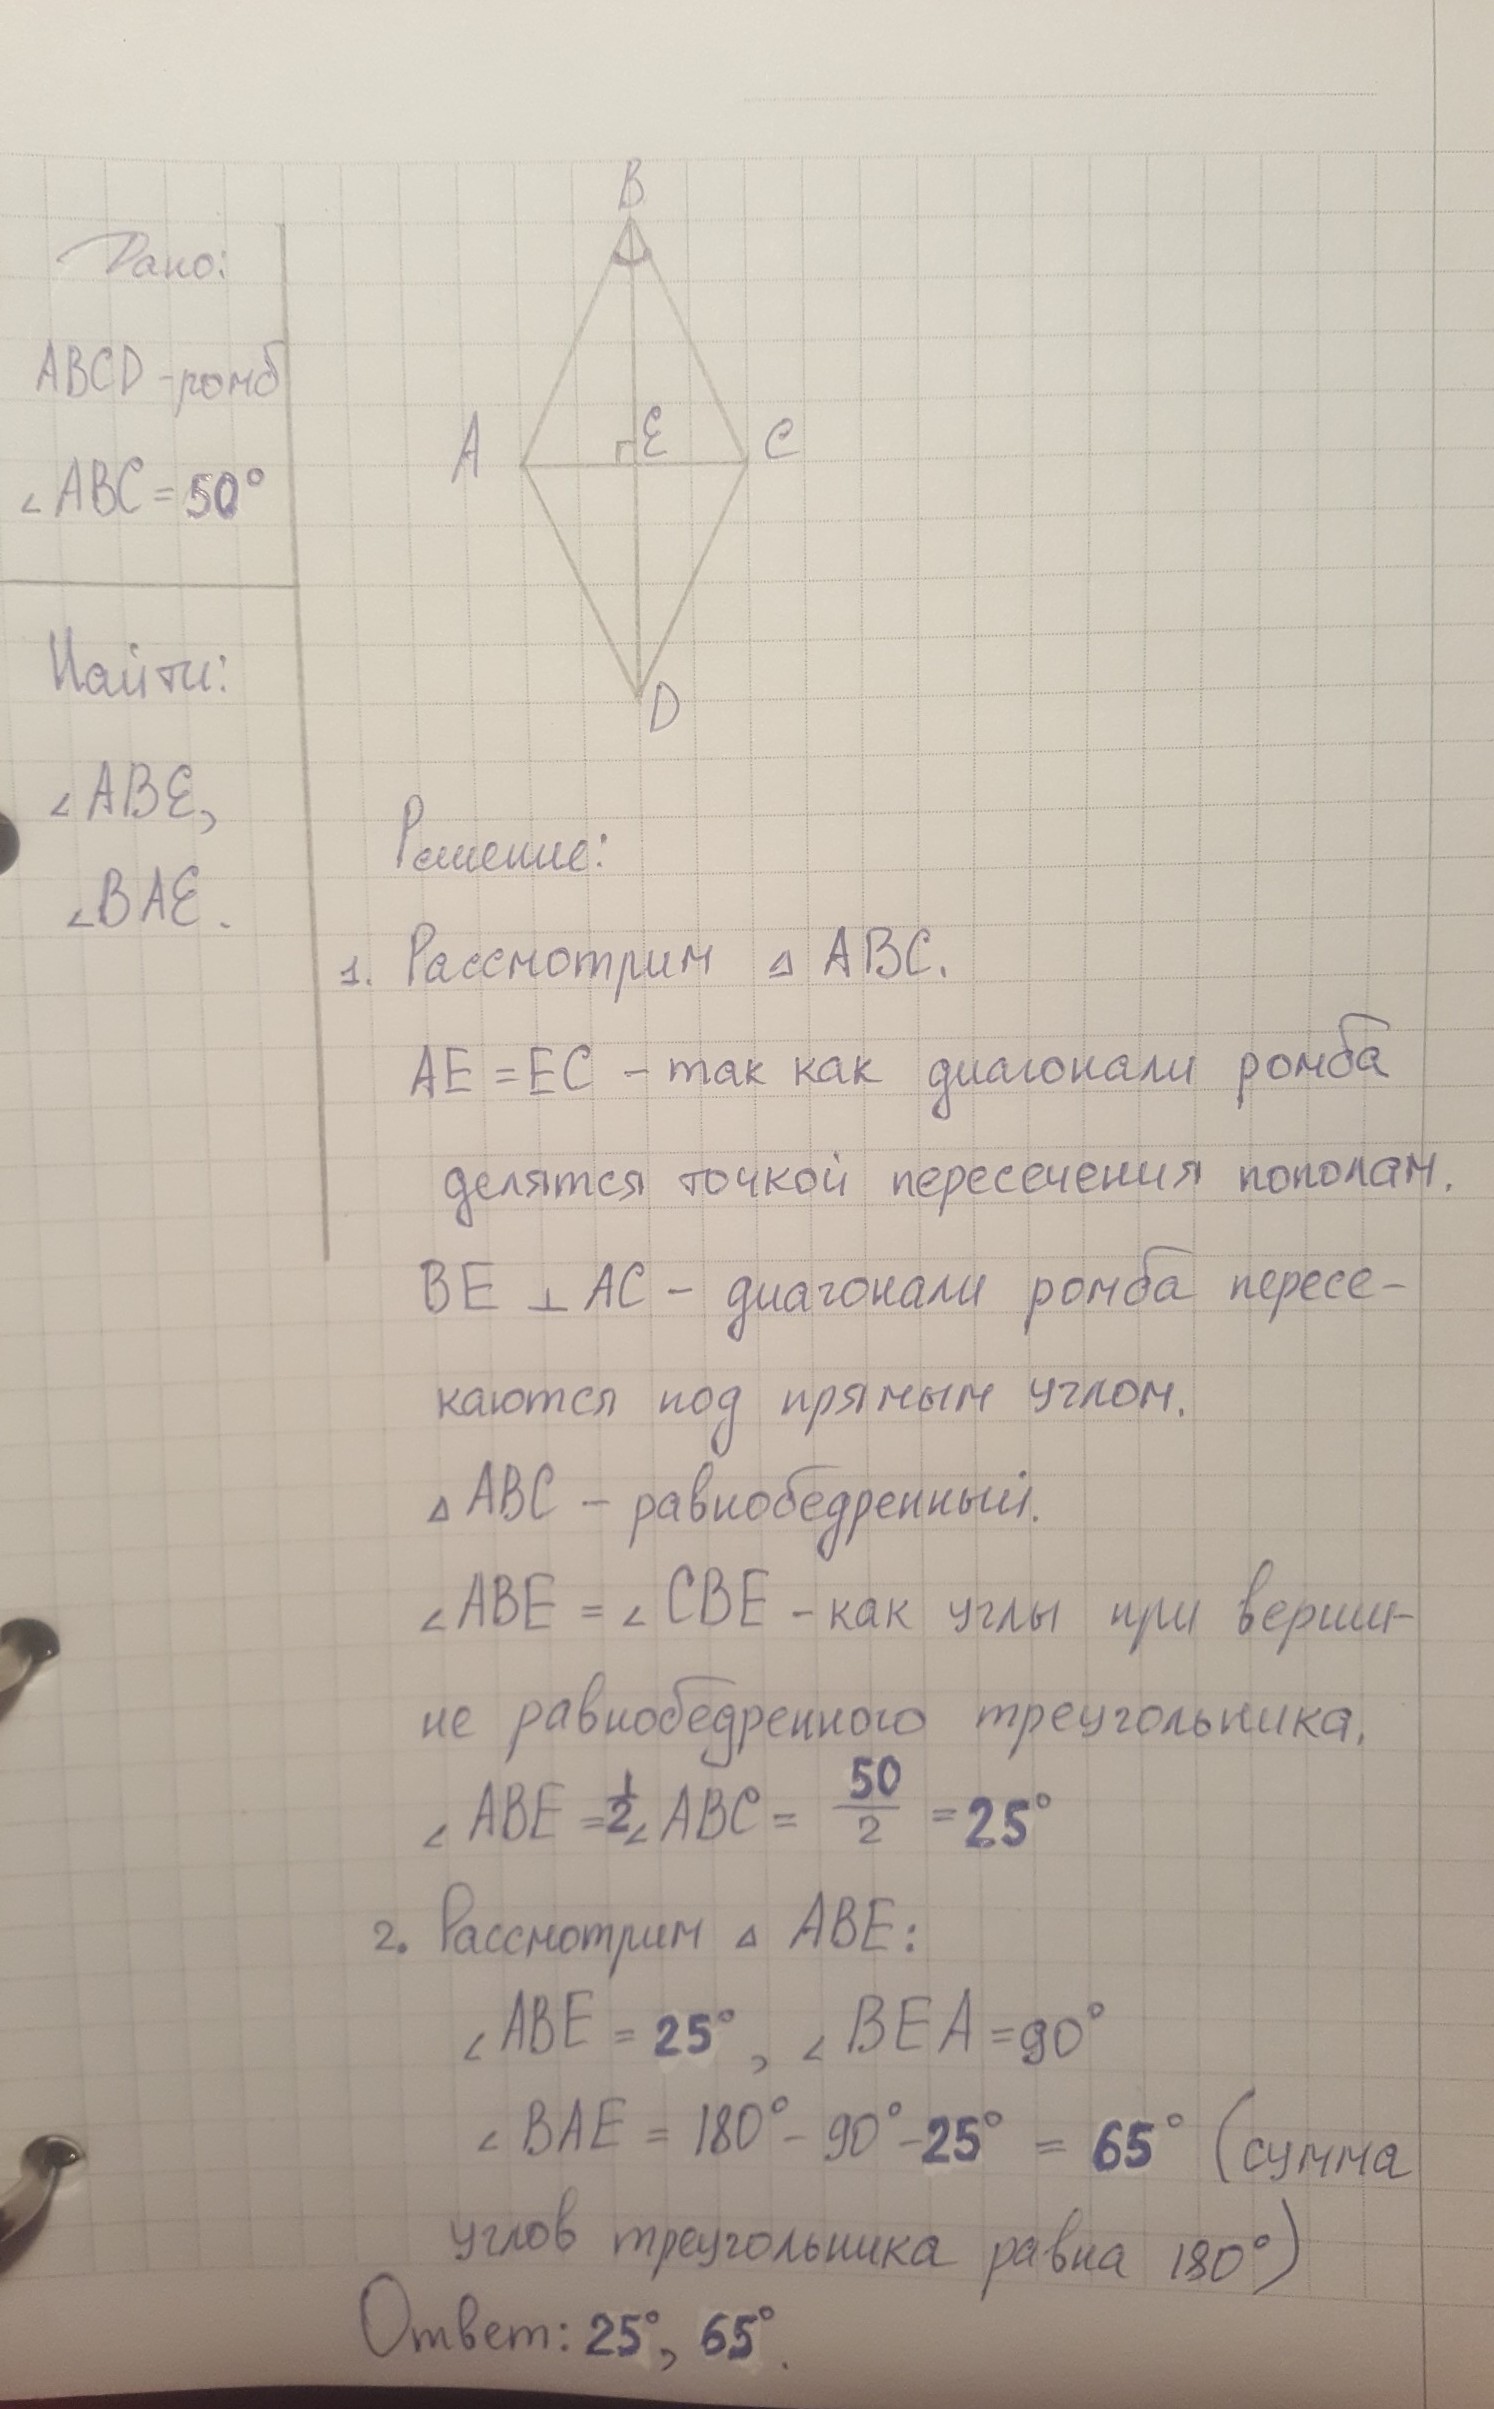 B
Дано:
ABCD - ромб
A
E
C
∠ABC = 50°
Найти:
D
∠ABE,
∠BAE.
Решение:
1. Рассмотрим △ ABC.
AE = EC - так как диагонали ромба
делятся точкой пересечения пополам.
BE ⊥ AC - диагонали ромба пересе-
каются под прямым углом.
△ ABC - равнобедренный.
∠ABE = ∠CBE - как углы при верши-
не равнобедренного треугольника.
∠ABE = 1/2 ∠ABC = 50/2 = 25°
2. Рассмотрим △ ABE:
∠ABE = 25°, ∠BEA = 90°
∠BAE = 180° - 90° - 25° = 65° (сумма
углов треугольника равна 180°)
Ответ: 25°, 65°.